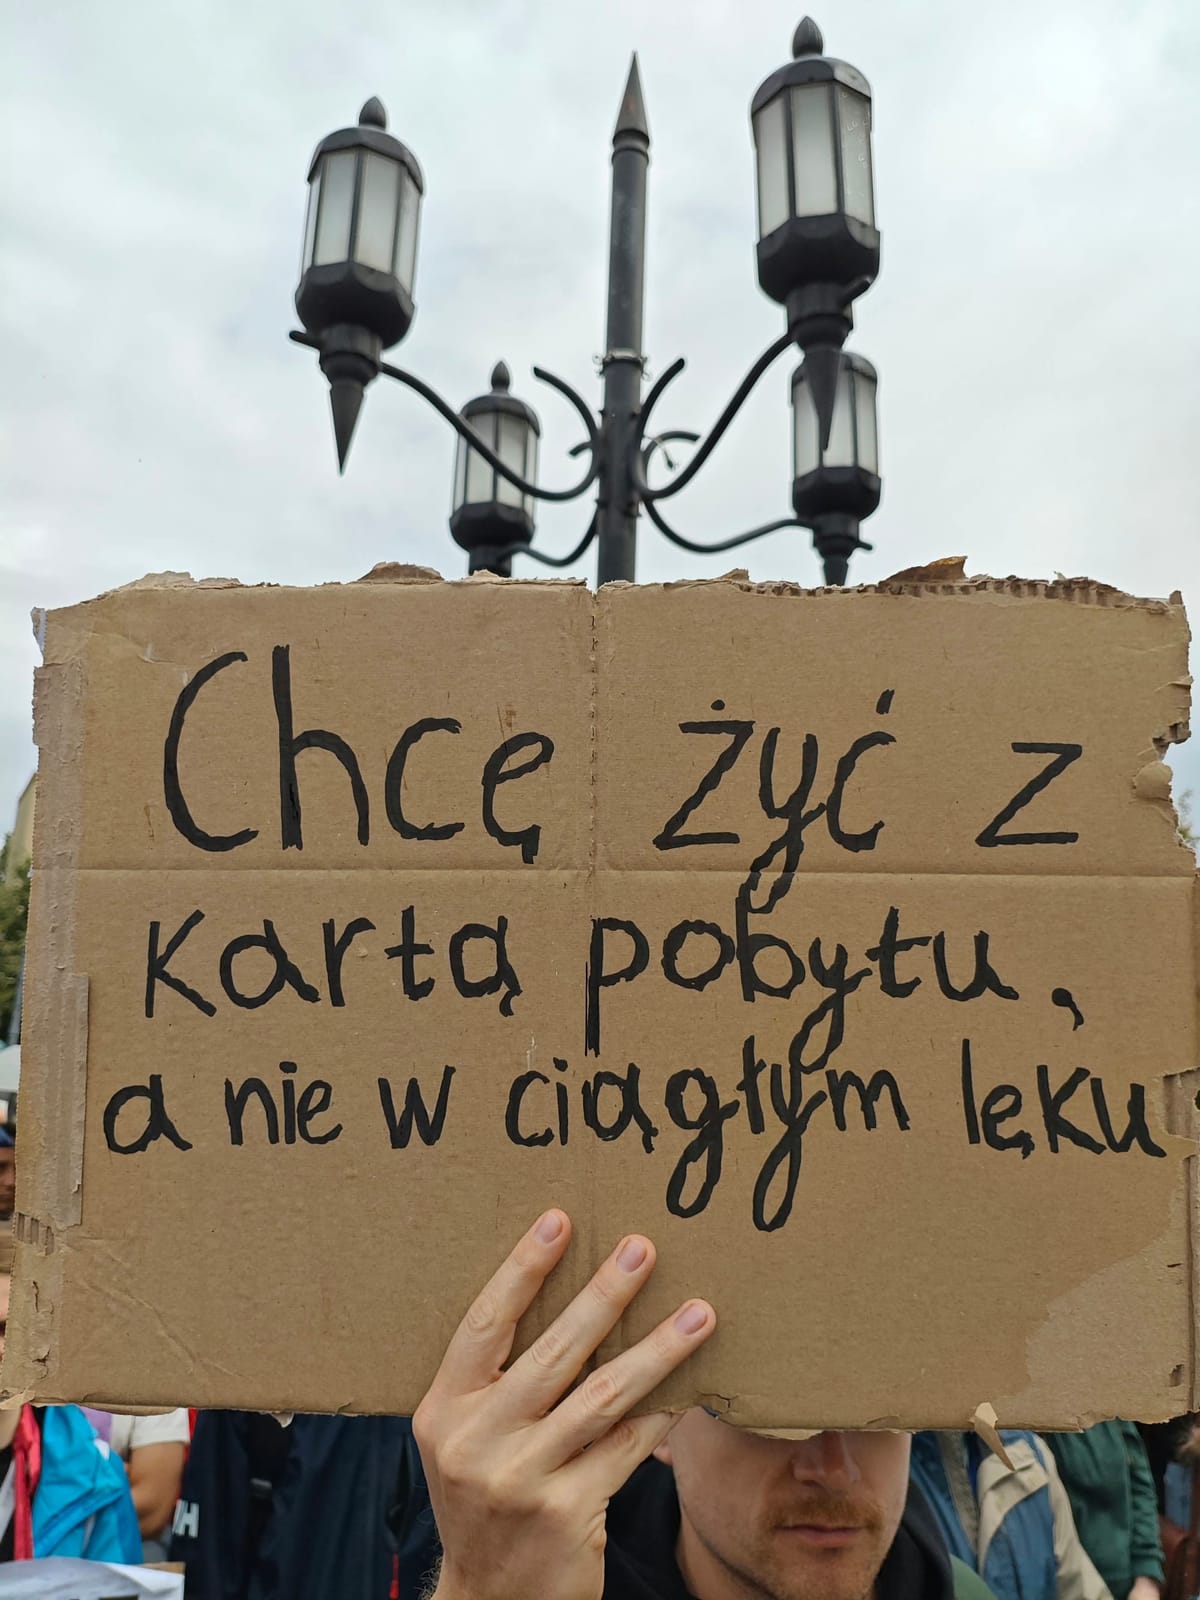 Chcę żyć z
kartą pobytu,
a nie w ciągłym lęku